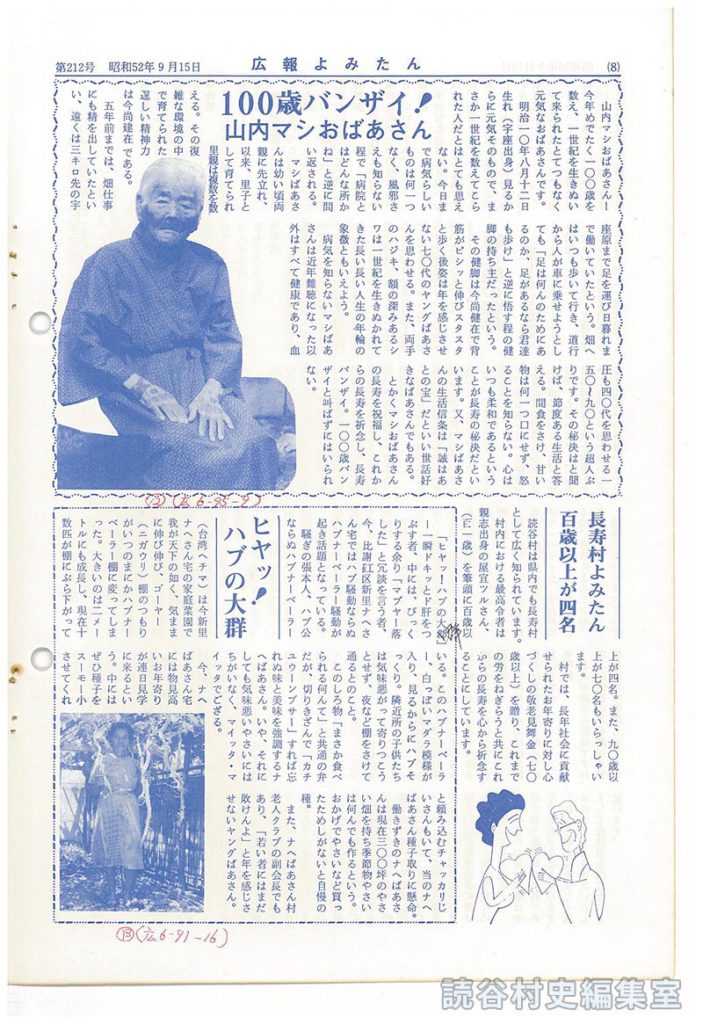 第212号 昭和52年9月15日 広報よみたん (8)
100歳バンザイ!
山内マシおばあさん
山内マシおばあさんー
今年めでたく一〇〇歳を
数え、一世紀を生きぬい
て来られたとてつもなく
元気なおばあさんです。
明治一〇年八月十二日
生れ(字座出身)見るか
らに元気そのもので、ま
さか一世紀を数えてこら
れた人だとはとても思え
ない。今日ま
で病気らしい
ものは何一つ
なく、風邪さ
えも知らない
程で「病院と
はどんな所か
ね」と逆に問
い返される。
マシばあさ
んは幼い頃両
親に先立れ、
以来、里子と
して育てられ
里親は複数を数
える。その復
雑な環境の中
で育てられた
逞しい精神力
は今尚建在である。
五年前までは、畑仕事
にも精を出していたとい
い、遠くは三キロ先の字
座原まで足を運び日暮れま
で働いていたという。畑へ
はいつも歩いて行き、道行
から人が車に乗せようとし
ても「足は何んのためにあ
るのか、足があるなら君達
も歩け」と逆に悟す程の健
脚の持ち主だったという。
その健脚は今尚健在で背
筋がピシッと伸びスタスタ
と歩く後姿は年を感じさせ
ない七〇代のヤングばあさ
んを思わせる。また、両手
のハジキ、額の深みあるシ
ワは一世紀を生きぬかれて
きた長い長い人生の年輪の
象徴ともいえよう。
病気を知らないマシばあ
さんは近年難聴になった以
外はすべて健康であり、血
圧も四〇代を思わせる一
五〇〜九〇という超人ぶ
りです。その秘決はと聞
けば、節度ある生活と答
える。間食をさけ、甘い
物は何一つ口にせず、怒
ることを知らない。心は
いつも柔和であるという
ことが長寿の秘決だとい
います。又、マシばあさ
んの生活信条は「誠はあ
との宝」だといい世話好
きなばあさんでもある。
とかくマシおばあさん
の長寿を祝福し、これか
らの長寿を祈念し、長寿
バンザイ。一〇〇歳バン
ザイと叫ばずにはいられ
ない。
⑬(広6-95-9)
長寿村よみたん
百歳以上が四名
読谷村は県内でも長寿村
として広く知られています。
村内における最高令者は
親志出身の屋宜ツルさん、
を筆頭に百歳以
上が四名。また、九〇歳以
上が七〇名もいらっしゃい
ます。
村では、長年社会に貢献
せられたお年寄りに対し心
づくしの敬老見舞金(七〇
歳以上)を贈り、これまで
の労をねぎらうと共にこれ
からの長寿を心から祈念す
ることにしています。
ヒヤッ!
ハブの大群
「ヒャッ!ハブの大群
ー一瞬ドキッと肝をつ
ぶす者、中には、びっく
りする余り「マブヤー落
した」と冗談を言う者、
今、比謝矼区新里ナヘさ
ん宅ではハブ騒動ならぬ
ハブナーベーラー騒動が
起き話題となっている。
騒ぎの張本人、ハブ公
ならぬハブナーベーラー
(台湾ヘチマ)は今新里
ナヘさん宅の家庭菜園で
我が天下の如く、気まま
に伸び伸び、ゴーヤー
(ニガウリ)棚のつもり
がいつのまにかハブナー
ベーラー棚に変ってしま
った。大きいのは二メー
トルにも成長し、現在十
数匹が棚にぶら下がって
いる。このハブナーベーラ
ー、白っぽいマダラ模様が
入り、見るからにハブそ
っくり。隣近所の子供たち
は気味悪がって寄りつこう
とせず、夜など棚をさけて
通るとのこと。
このしろ物「まさか食べ
られる何んて」と共通の弁
だが、切りきざんで「カチ
ュウーンブサー」すれば忘
れぬ味と美味を強調するナ
ヘばあさん。いや、それに
しても気味悪いやさいには
ちがいなく、マイッタ・マ
イッタでござる。
今、ナヘ
ばあさん宅
には物見高
いお年寄り
が連日見学
に来るとい
う。中には
ぜひ種子を
スーモー小
させてくれ
と頼み込むチャッカリじ
いさんもいて、当のナヘ
ばあさん種子取りに懸命。
働きずきのナヘばあさ
んは現在三〇〇坪のやさ
い畑を持ち季節物やさい
は何んでも作るという。
おかげでやさいなど買っ
たためしがないと自慢の
種。
また、ナヘばあさん村
老人クラブの副会長でも
あり、「若い者にはまだ
敗けんよ」と年を感じさ
せないヤングばあさん。
⑬(広6-91-16)
読谷村史編集室